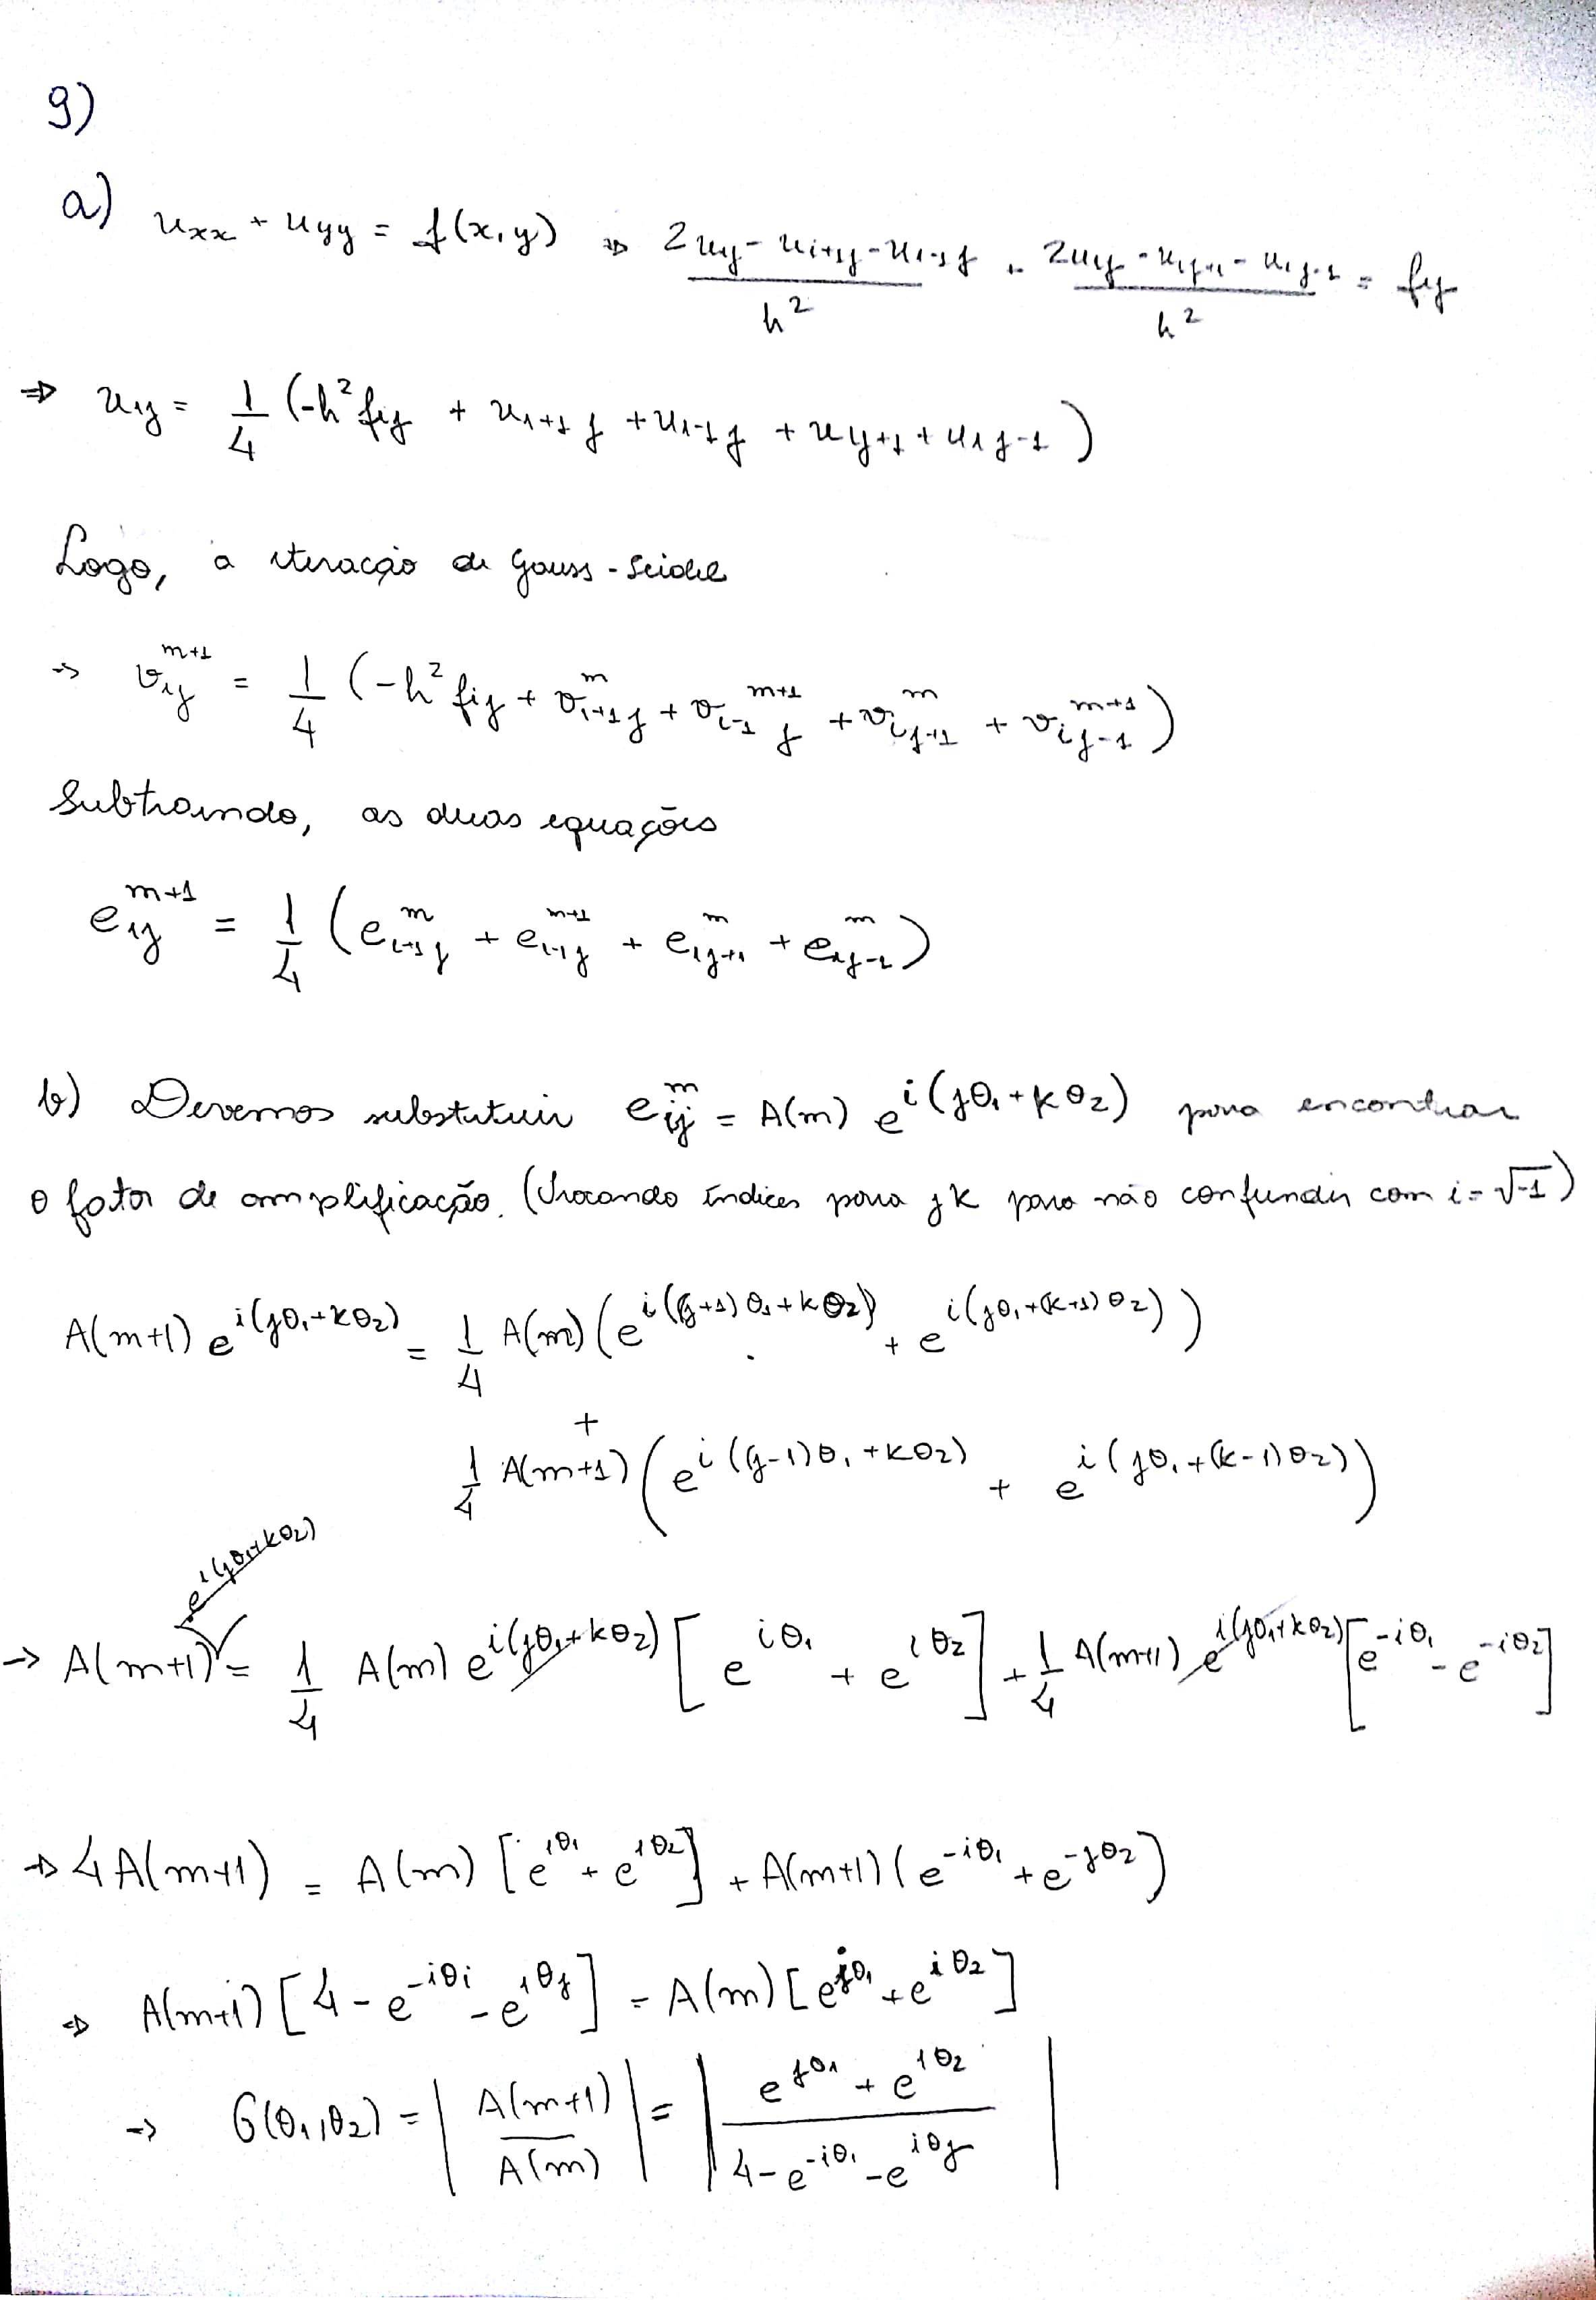 9)
a) u_xx + u_yy = f(x,y) ⇒ (2u_ij - u_i+1j - u_i-1j)/h² + (2u_ij - u_ij+1 - u_ij-1)/h² = f_ij
⇒ u_ij = 1/4 (-h² f_ij + u_i+1j + u_i-1j + u_ij+1 + u_ij-1)
Logo, a iteração de Gauss-Seidel
→ v_ij^(m+1) = 1/4 (-h² f_ij + v_i+1j^m + v_i-1j^(m+1) + v_ij+1^m + v_ij-1^(m+1))
Subtraindo, as duas equações
e_ij^(m+1) = 1/4 (e_i+1j^m + e_i-1j^(m+1) + e_ij+1^m + e_ij-1^m)
b) Devemos substituir e_ij^m = A(m) e^(i(jθ₁+kθ₂)) para encontrar
o fator de amplificação. (trocando índices para jk para não confundir com i=√-1)
A(m+1) e^(i(jθ₁+kθ₂)) = 1/4 A(m) (e^(i((j+1)θ₁+kθ₂)) + e^(i(jθ₁+(k+1)θ₂)))
+
1/4 A(m+1) (e^(i((j-1)θ₁+kθ₂)) + e^(i(jθ₁+(k-1)θ₂)))
e^(i(jθ₁+kθ₂))
→ A(m+1) = 1/4 A(m) e^(i(jθ₁+kθ₂)) [e^(iθ₁) + e^(iθ₂)] + 1/4 A(m+1) e^(i(jθ₁+kθ₂)) [e^(-iθ₁) - e^(-iθ₂)]
⇒ 4A(m+1) = A(m) [e^(iθ₁) + e^(iθ₂)] + A(m+1) (e^(-iθ₁) + e^(-jθ₂))
⇒ A(m+1) [4 - e^(-iθi) - e^(iθj)] = A(m) [e^(jθ₁) + e^(iθ₂)]
→ G(θ₁,θ₂) = |A(m+1)/A(m)| = |(e^(jθ₁) + e^(iθ₂))/(4 - e^(-iθ₁) - e^(iθj))|